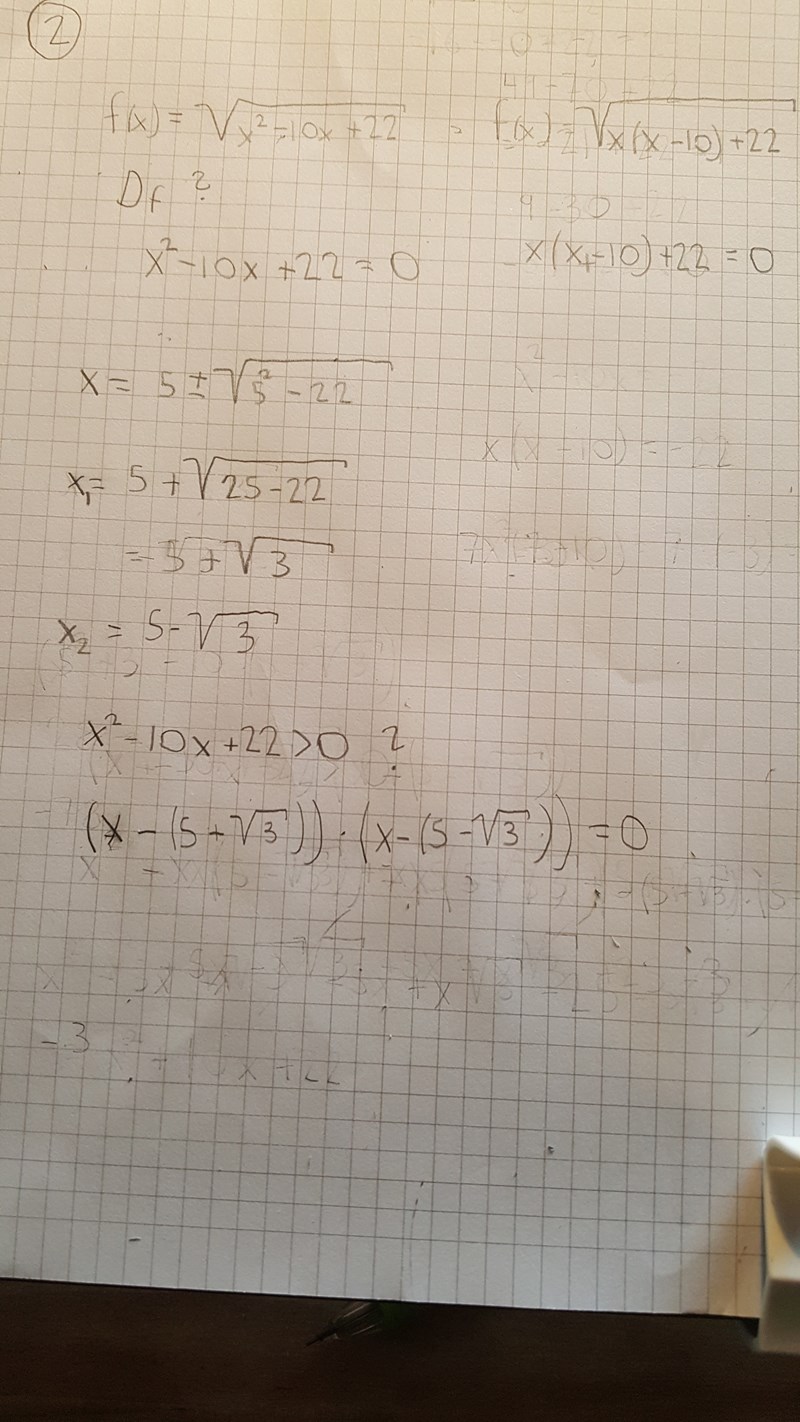 2
f(x) = √(x² - 10x + 22) = f(x) = √(x(x - 10) + 22)
Df ?
x² - 10x + 22 = 0
x(x - 10) + 22 = 0
x = 5 ± √(5² - 22)
x(x - 10) = -22
x₁ = 5 + √(25 - 22)
= 5 + √3
x₂ = 5 - √3
x² - 10x + 22 > 0 ?
(x - (5 + √3)) · (x - (5 - √3)) = 0
- 3